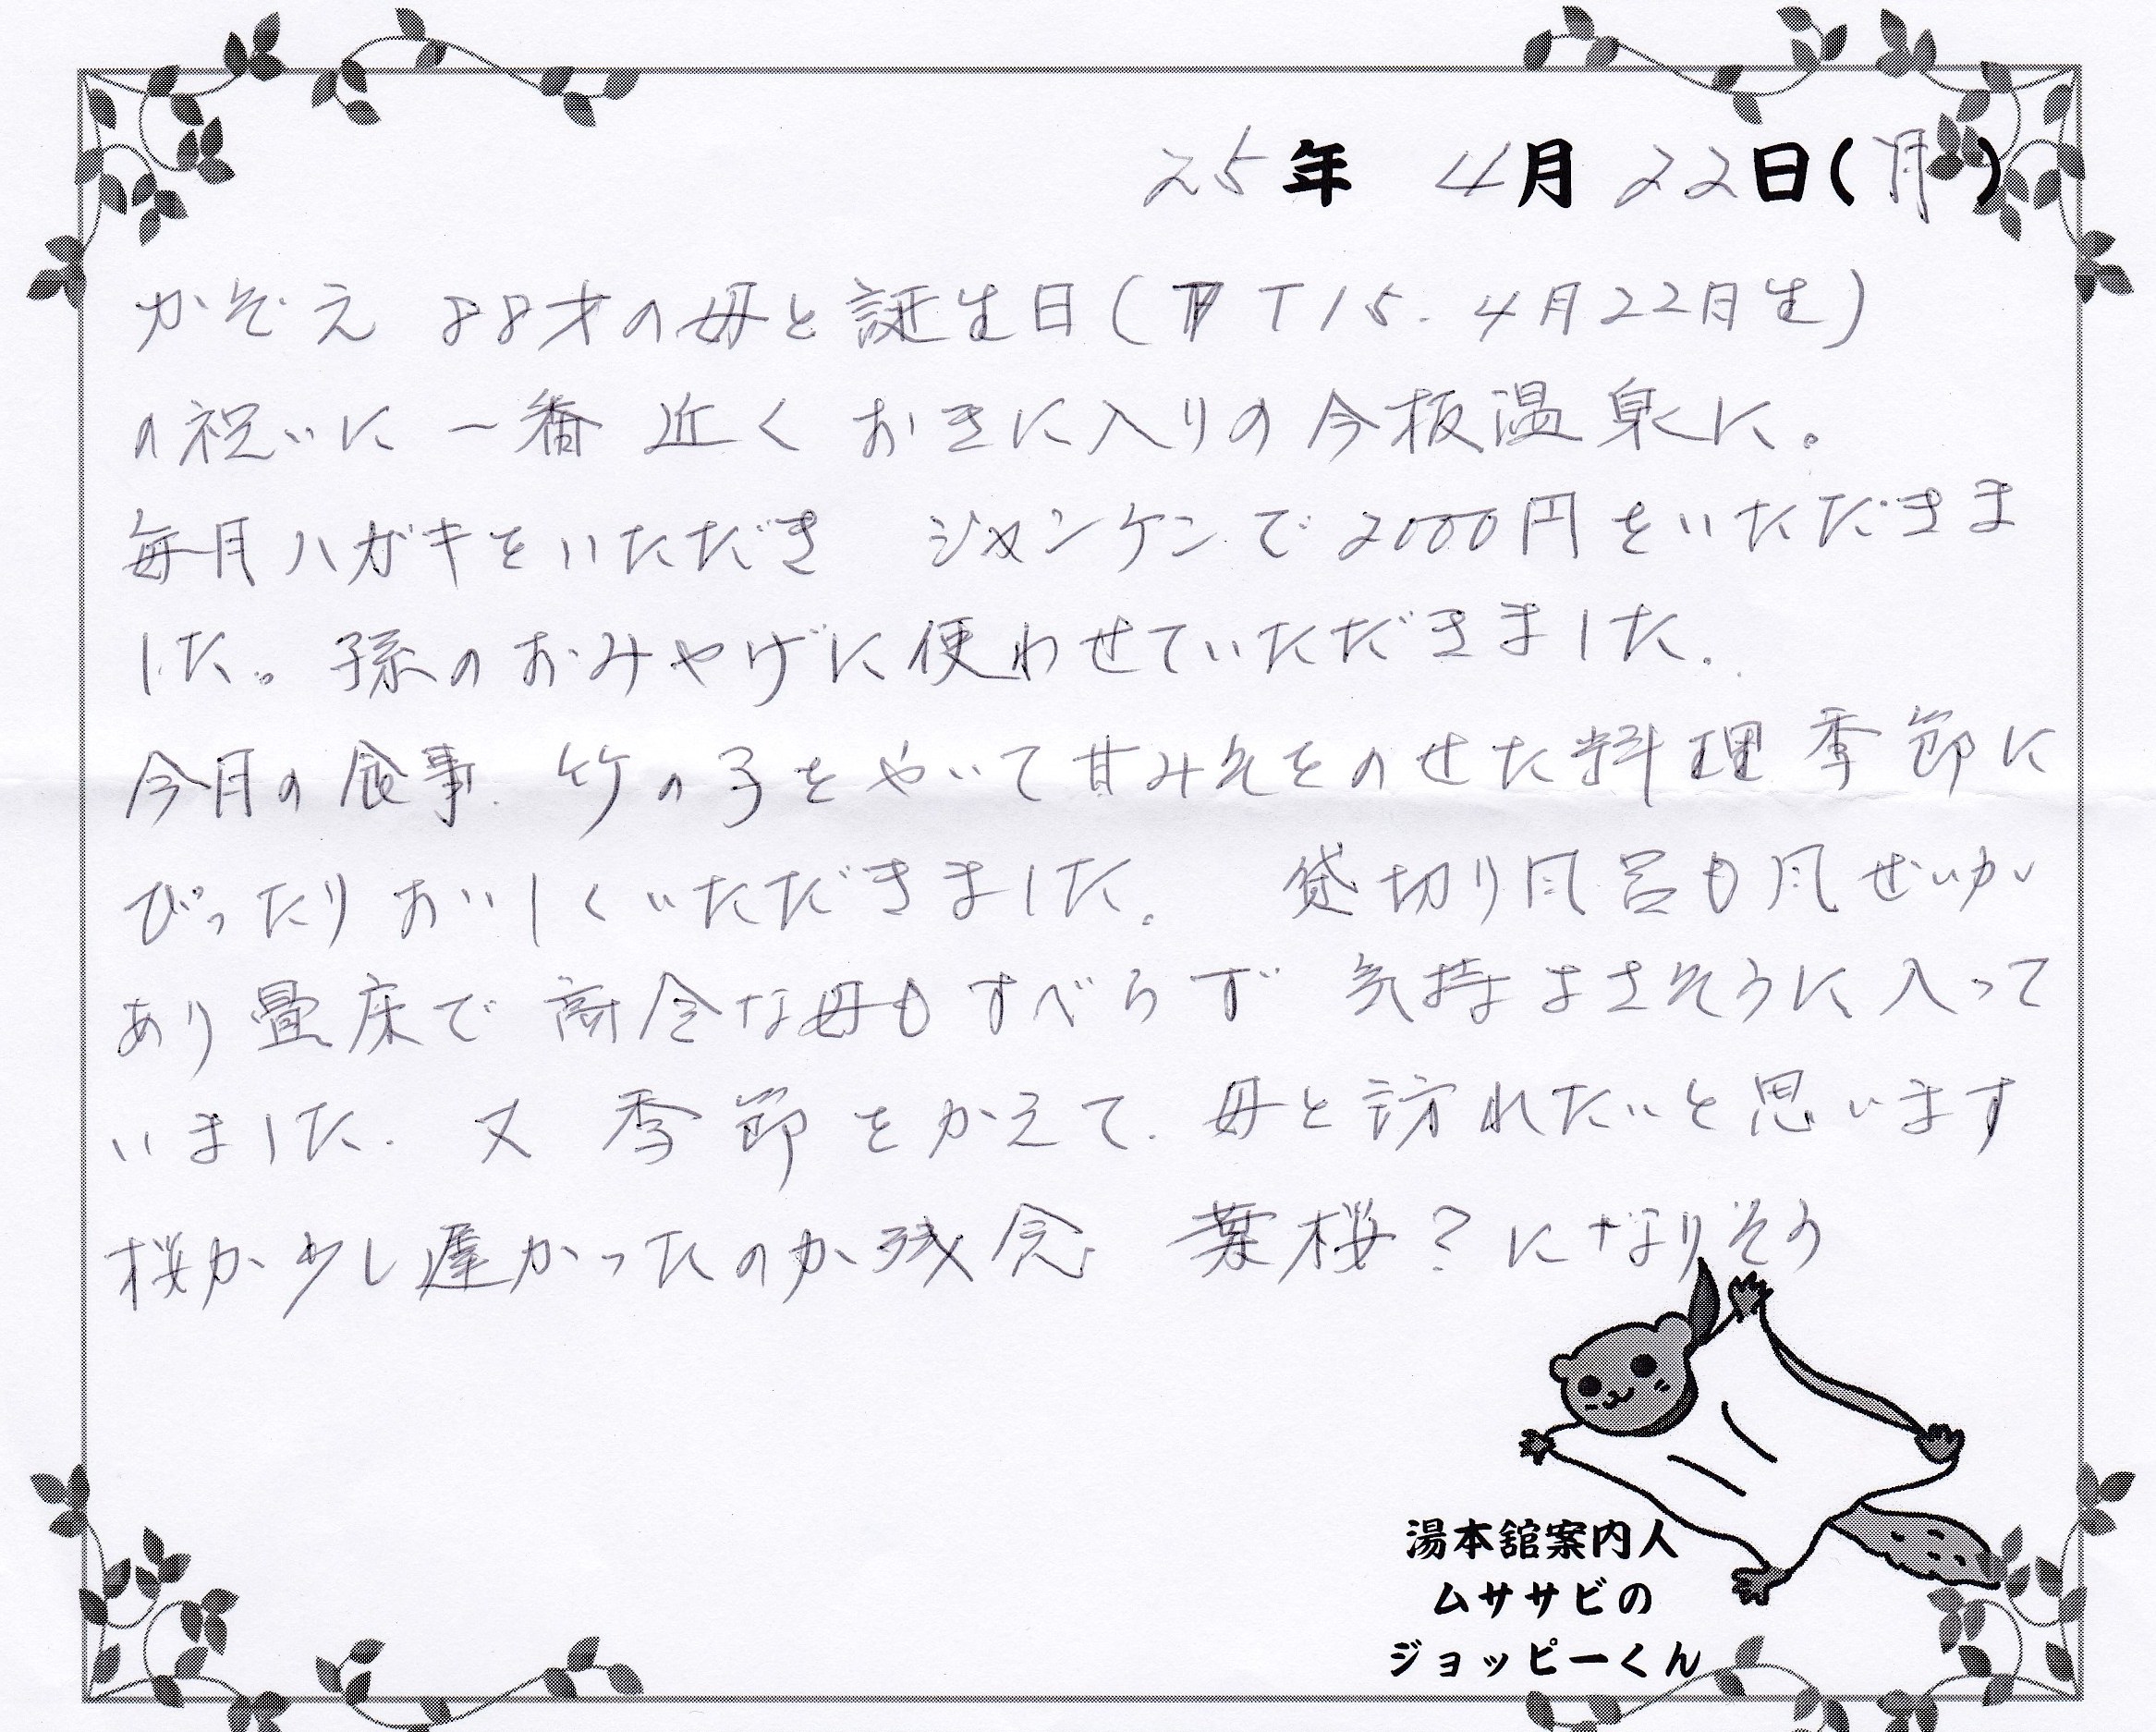 25年 4月 22日(月)
かぞえ 88才の母と誕生日( T15. 4月22日生)
の祝いに 一番 近く おきに入りの 今板温泉に。
毎月ハガキをいただき ジャンケンで 2000円をいただきま
した。孫のおみやげに使わせていただきました.
今月の食事. 竹の子をやいて甘みそをのせた料理 季節に
ぴったりおいしくいただきました. 貸切り風呂も風ぜいが
あり畳床で 高令な母もすべらず 気持よさそうに入って
いました. 又 季節をかえて. 母と訪れたいと思います
桜が少し遅かったのか残念 葉桜?になりそう
湯本舘案内人
ムササビの
ジョッピーくん